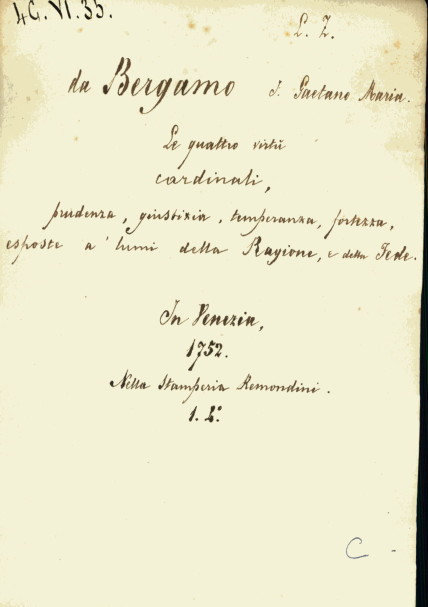 4G. VI. 35.
L. Z.
da Bergamo f. Gaetano Maria.
Le quattro virtù
cardinali,
prudenza, giustizia, temperanza, fortezza,
esposte a' lumi della Ragione, e della Fede.
In Venezia,
1752.
Nella Stamperia Remondini.
1. 8°.
C -